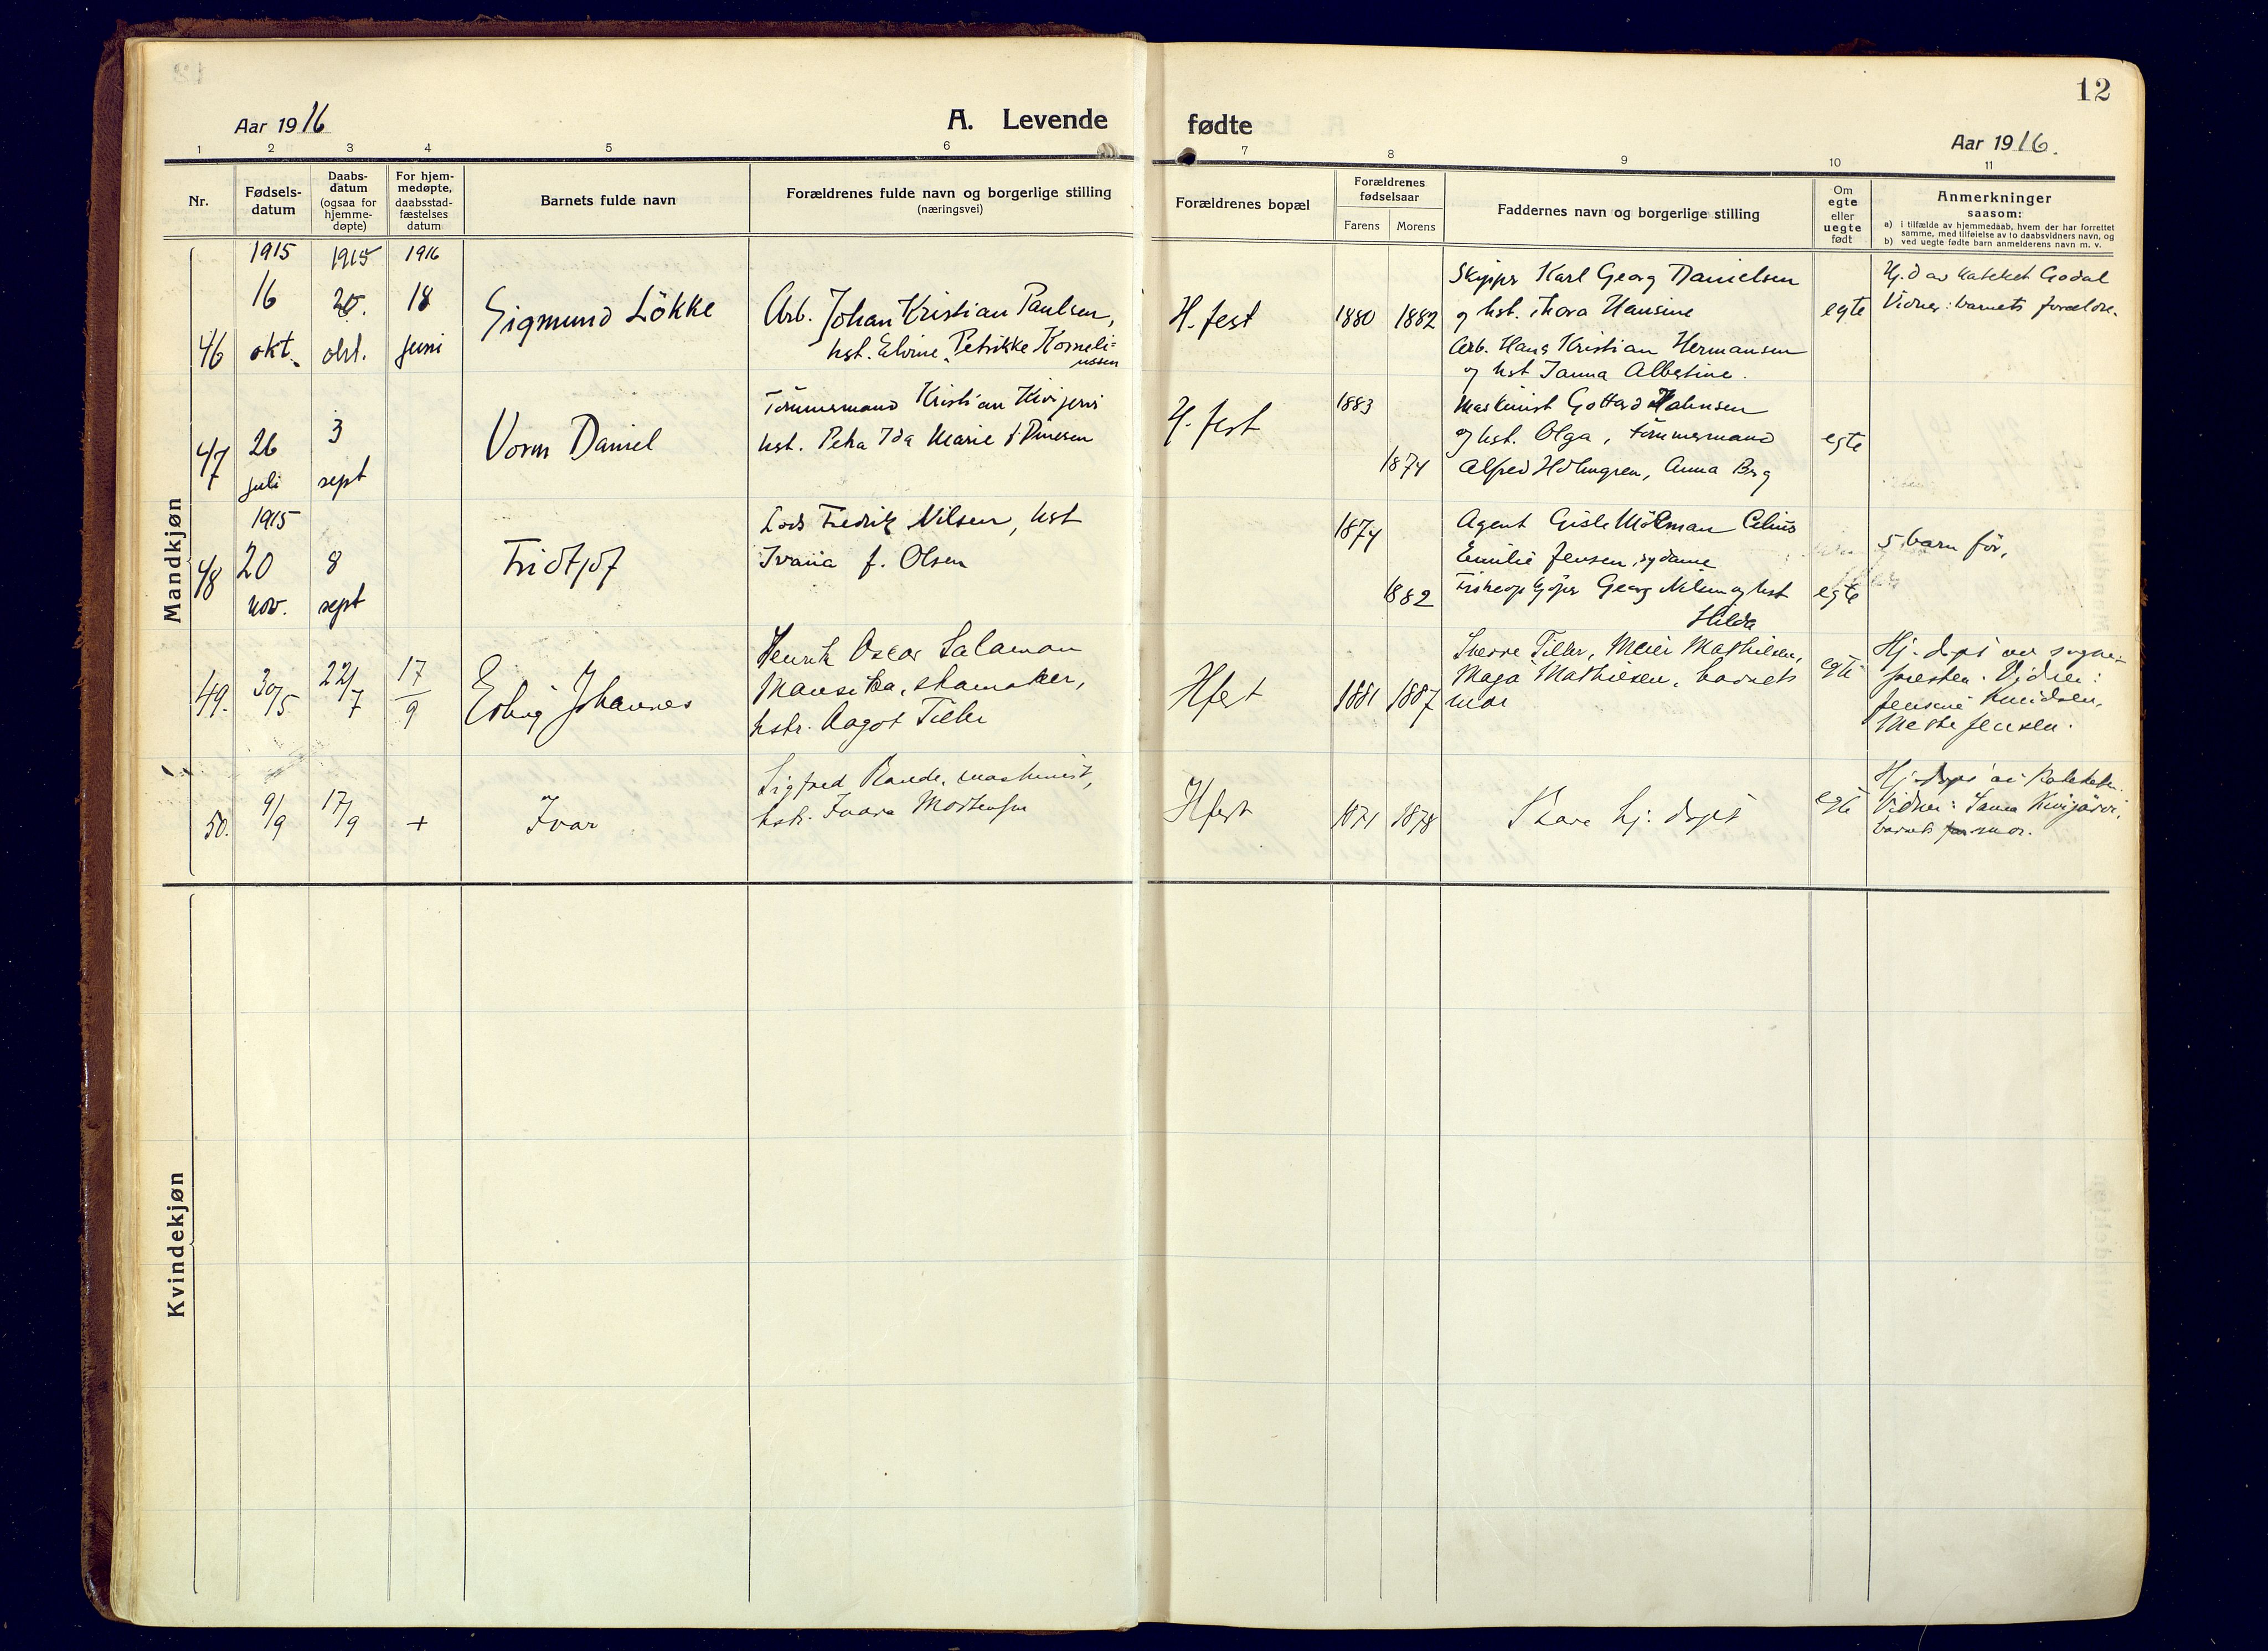 12
Aar 1916
A. Levende fødte
Aar 1916.
1 2 3 4 5 6 7 8 9 10 11
Nr.
Fødsels-
datum
Daabs-
datum
(ogsaa for
hjemme-
døpte)
For hjem-
medøpte,
daabsstad-
fæstelses
datum
Barnets fulde navn
Forældrenes fulde navn og borgerlige stilling
(næringsvei)
Forældrenes bopæl
Forældrenes
fødselsaar
Farens Morens
Faddernes navn og borgerlige stilling
Om
egte
eller
uegte
født
Anmerkninger
saasom:
a) i tilfælde av hjemmedaab, hvem der har forrettet
samme, med tilføielse av to daabsvidners navn, og
b) ved uegte fødte barn anmelderens navn m. v.
Mandkjøn
46
1915
16
okt.
1915
20.
okt.
1916
18
juni
Sigmund Løkke
Arb. Johan Kristian Paulsen,
hst. Elvine Petrikke Korneli=
ussen
H.fest
1880 1882
Skipper Karl Georg Danielsen
og hst. Thora Hansine
Arb. Hans Kristian Hermansen
og hst Janna Albertine.
egte
Hj. d av kateket Godal
Vidner: barnets forældre.
47
26
juli
3
sept
Vorm Daniel
Tømmermand Kristian Kivijervi
hst. Petra Ida Marie f.
H.fest
1883
1874
Maskinist Gottard Johnsen
og hst. Olga, tømmermand
Alfred Holmgren, Anna Berg
egte
48
1915
20
nov.
8
sept
Fridtjof
Lods Fredrik Nilsen, hst
Ivana f. Olsen
1874
1882
Agent Gisle Celius
Emilie Jensen, sydame
Georg Nilsen og hst
Hilda
egte
5 barn før,
49.
30/5
22/7
17/9
Johannes
Henrik Oscar Salamon
skomaker,
hstr. Aagot Tiller
Hfest
1881 1887
Sverre Tiller, Meier Mathisen,
Maja Mathiesen, barnets
mor
egte
Hj. døpt av sogne-
presten. Vidner:
Jensine Knudsen,
Mette Jensen.
50.
9/9
17/9
+
Ivar
Sigfred Rande, maskinist,
hstr. Ivara Mortensen
Hfest
1871 1878
Bare hj. døpt
egte
Hj. døpt av kateketen.
Vidner: Sanna Kivijärvi,
barnets mor.
Kvindekjøn